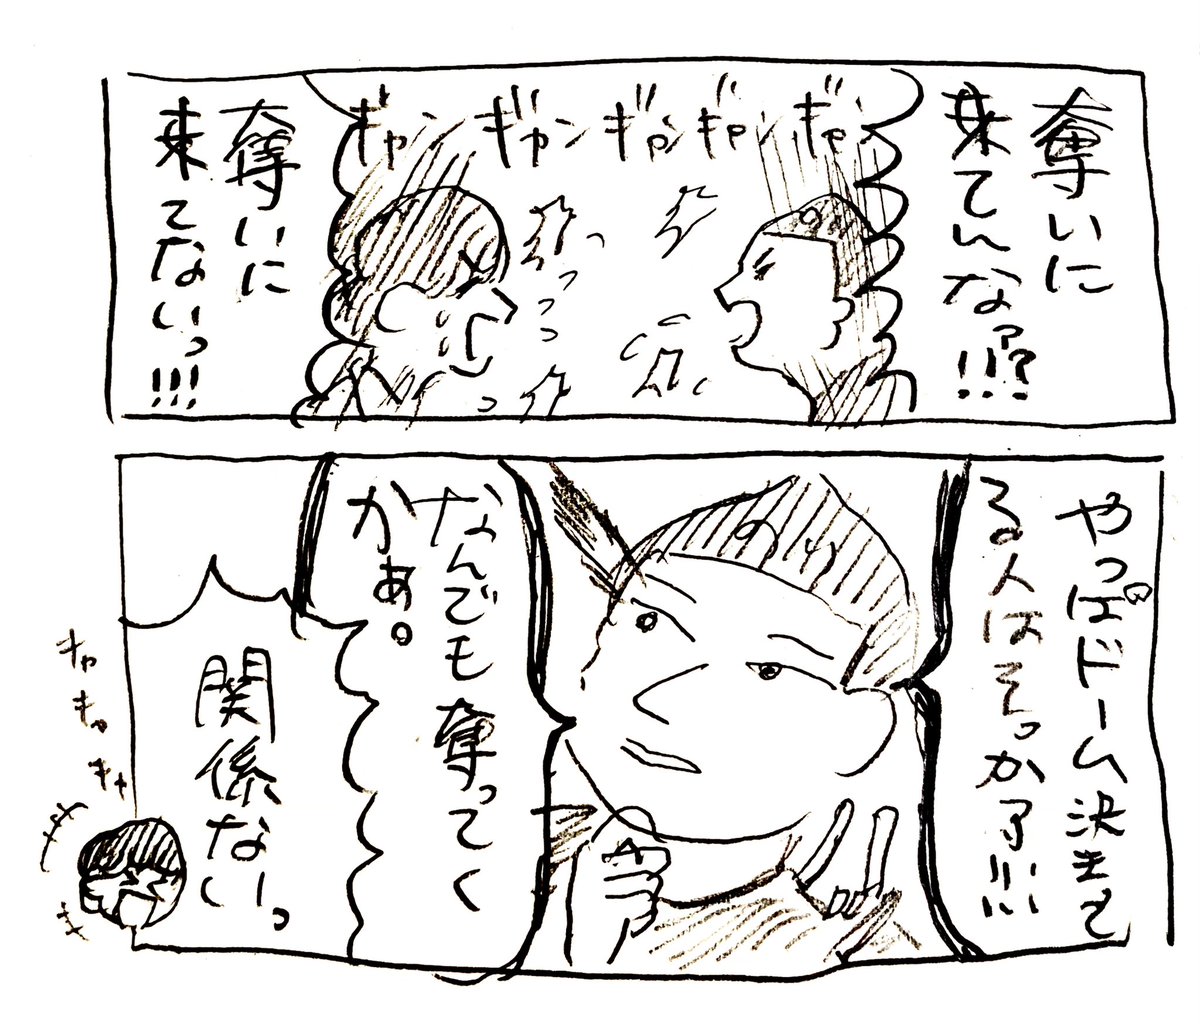 奪いに
来てんな!?!!
ギャンギャンギャンギャンギャン
奪いに
来てないっ!!!
やっぱドーム決まって
る人はそっか了!!!
のり
なんでも奪ってく
かぁ。
関係ないーっ
キャ
キャ
キャ